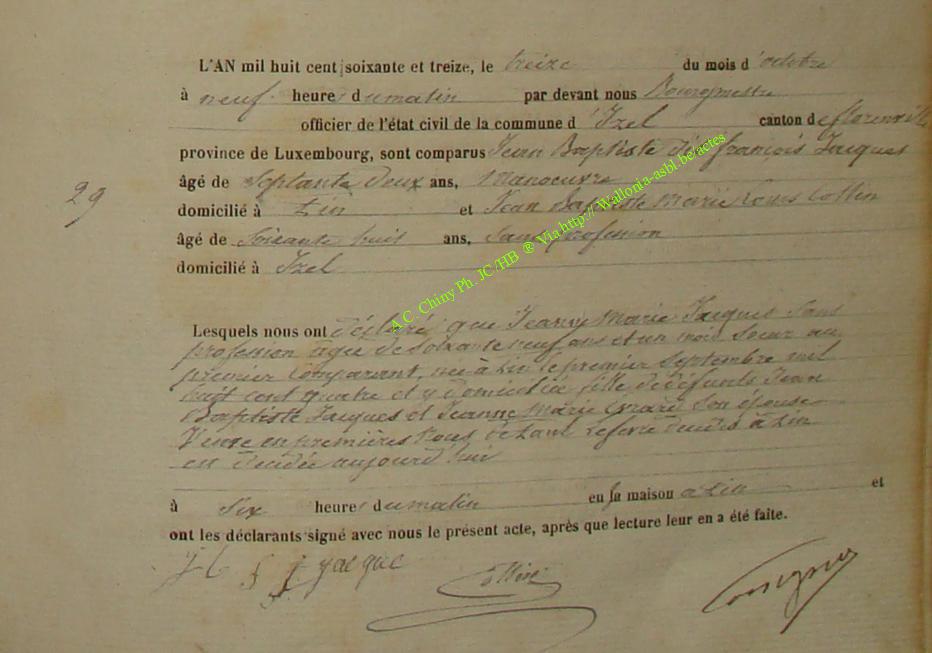 L'AN mil huit cent soixante et treize, le treize du mois d'octobre
à neuf heures du matin par devant nous Bourgmestre
officier de l'état civil de la commune d'Izel canton de florenville
province de Luxembourg, sont comparus Jean Baptiste dit françois Jacques
29
âgé de Septante deux ans, manoeuvre
domicilié à Pin et Jean Baptiste Marie Louis Collin
âgé de Soixante huit ans, Sans profession
domicilié à Izel
Lesquels nous ont déclaré que Jeanne Marie Jacques Sans
profession agée de Soixante neuf ans et un mois Soeur au
premier Comparant, née à Pin le premier Septembre mil
huit cent quatre et y domiciliée fille de défunts Jean
Baptiste Jacques et Jeanne Marie Son épouse
Veuve en premières Lefevre à Pin
est décédée aujourd'hui
à Six heures du matin en sa maison à Pin et
ont les déclarants signé avec nous le présent acte, après que lecture leur en a été faite.
J B f jacque
Collin
A.C. Chiny Ph. JC/HB ® Via http://Wallonia-asbl.be/actes